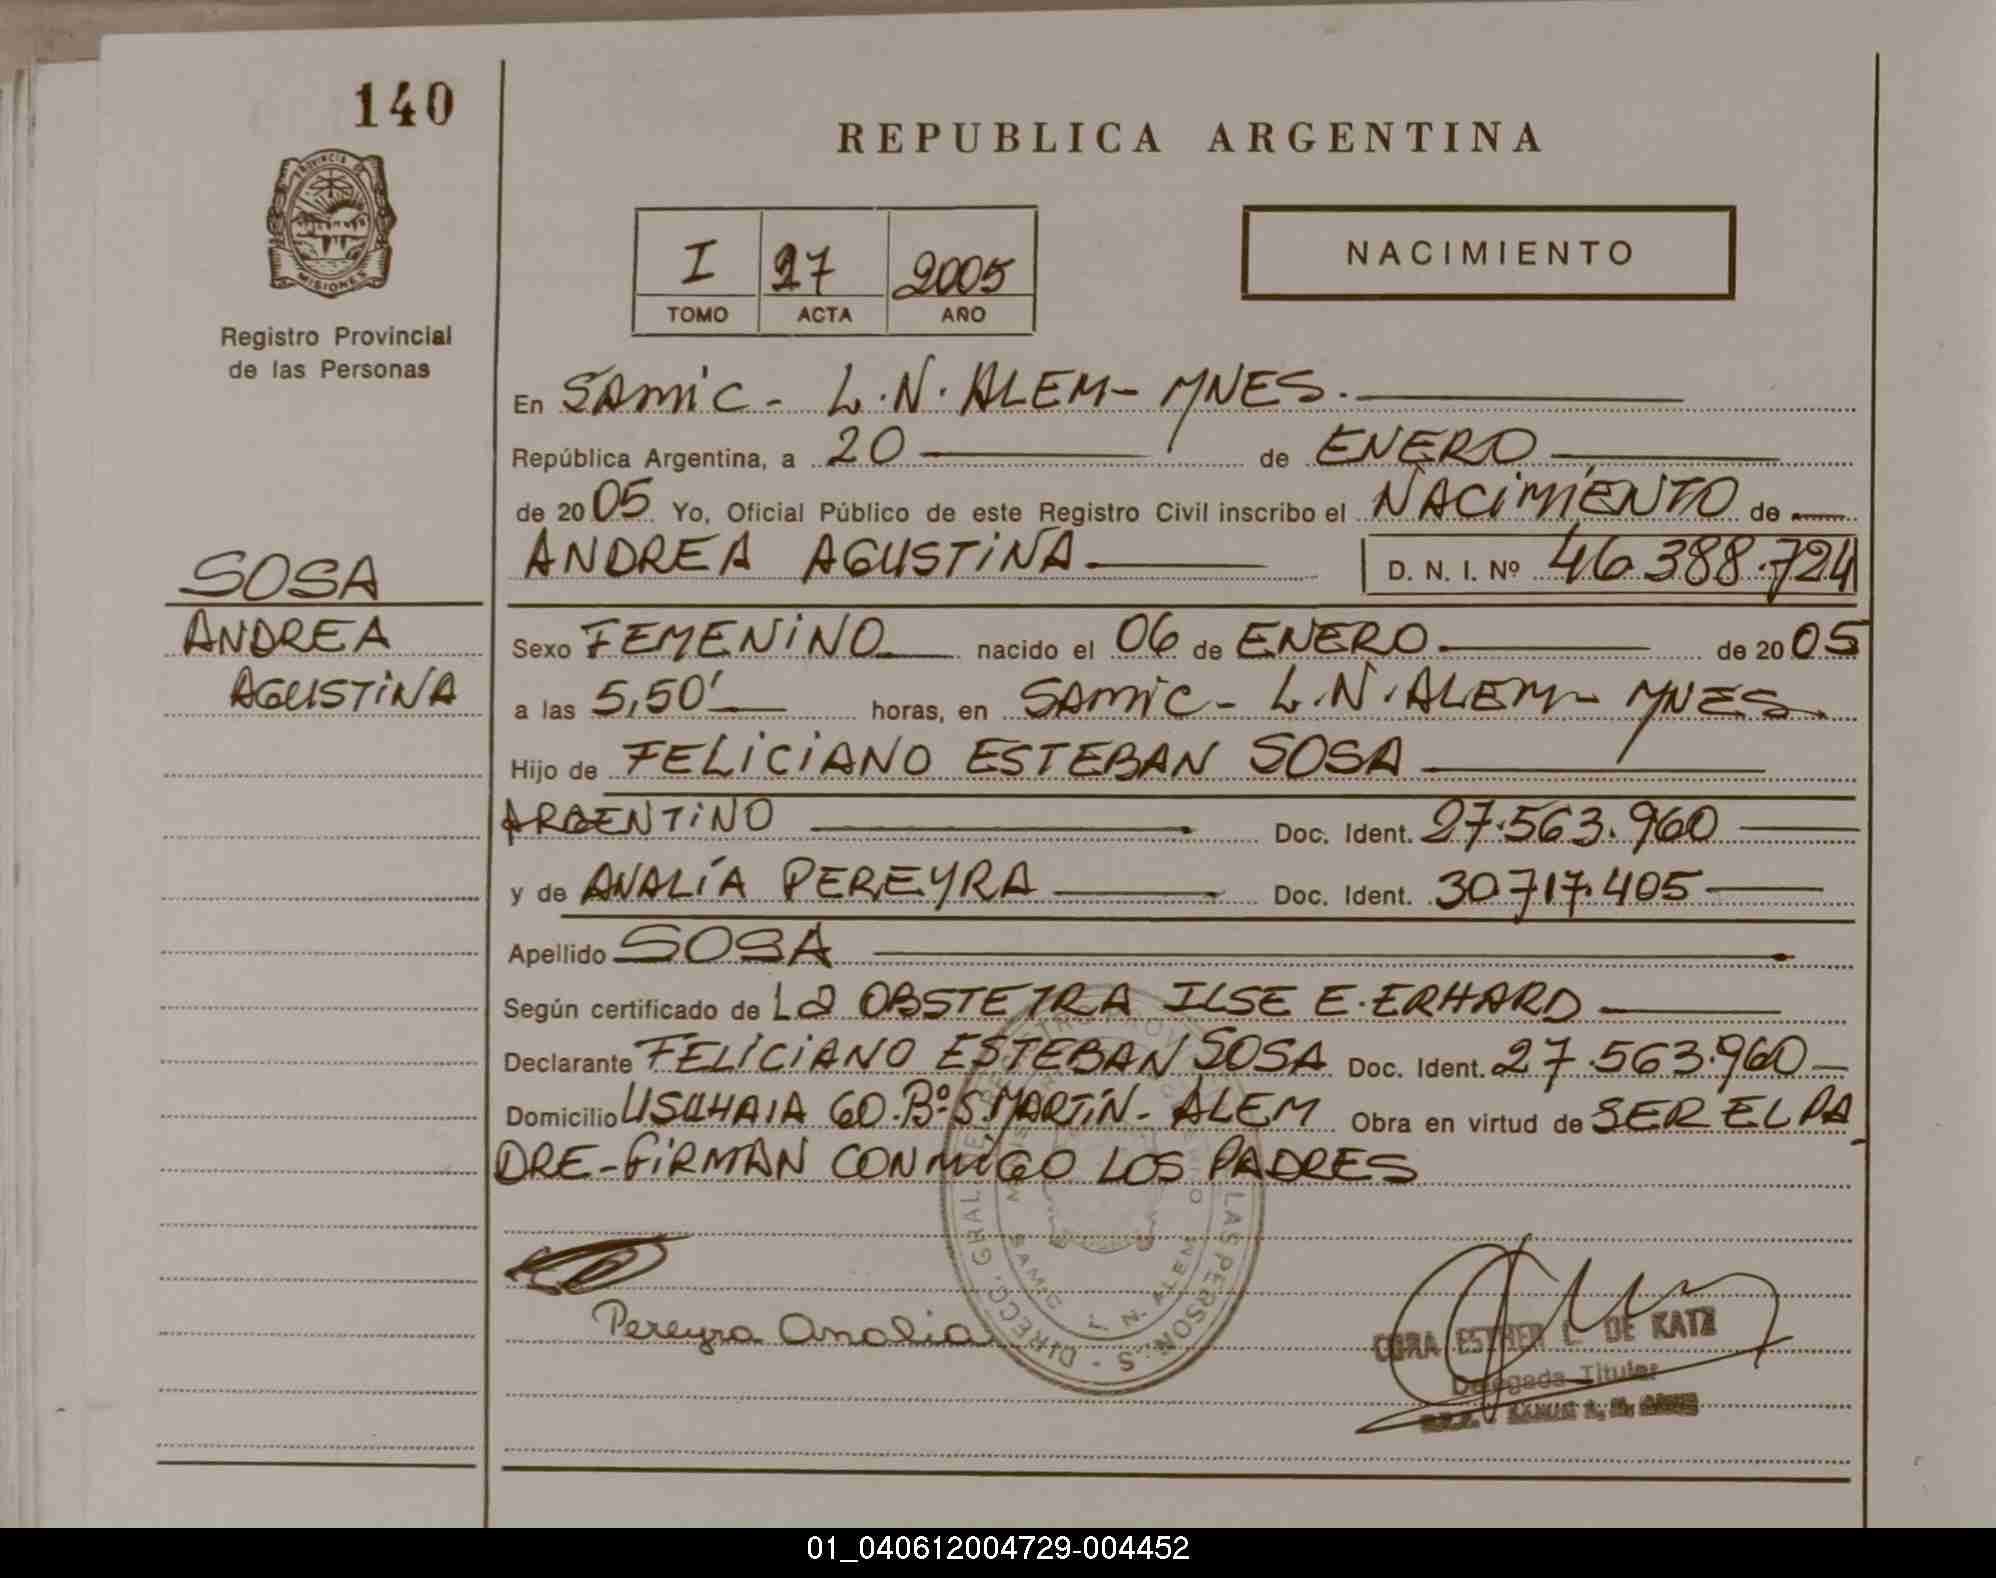 140
PROVINCIA DE
MISIONES
Registro Provincial
de las Personas
REPUBLICA ARGENTINA
I 27 2005
TOMO ACTA AÑO
NACIMIENTO
En SAMIC - L.N. ALEM - MNES.
República Argentina, a 20 de ENERO
de 2005 Yo, Oficial Público de este Registro Civil inscribo el NACIMIENTO de
ANDREA AGUSTINA D. N. I. Nº 46.388.724
SOSA
ANDREA
AGUSTINA
Sexo FEMENINO nacido el 06 de ENERO de 2005
a las 5,50' horas, en SAMIC - L.N. ALEM - MNES
Hijo de FELICIANO ESTEBAN SOSA
ARGENTINO Doc. Ident. 27.563.960
y de ANALÍA PEREYRA Doc. Ident. 30.717.405
Apellido SOSA
Según certificado de La OBSTETRA ILSE E. ERHARD
Declarante FELICIANO ESTEBAN SOSA Doc. Ident. 27.563.960
Domicilio USUHAIA 60. Bº S. MARTÍN - ALEM Obra en virtud de SER EL PA
DRE - FIRMAN CONMIGO LOS PADRES
Pereyra Analia
ESTHER L. DE KATZ
Delegada Titular
01_040612004729-004452